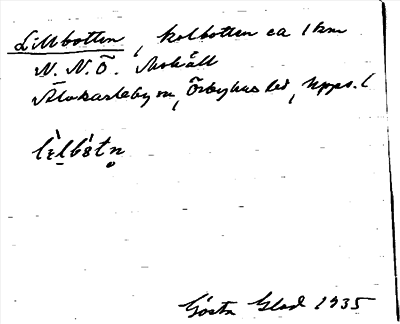 Lillbotten, kolbotten ca 1 km
N.N.Ö. Marhåll
Älvkarleby sn, Örbyhus hd, Upps. l
lìlbòtn̥
Gösta Glad 1935